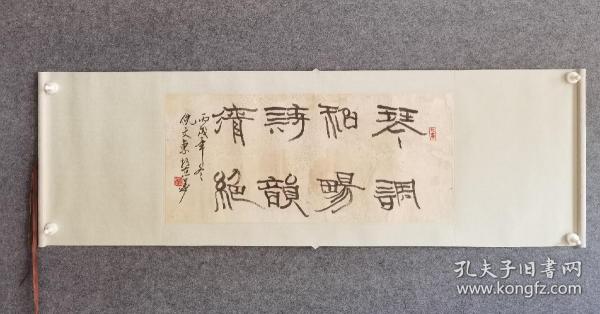 琴調
和暢
詩韻
清絕
丙戌年冬
倪文東
孔夫子旧書网
www.kongfz.com